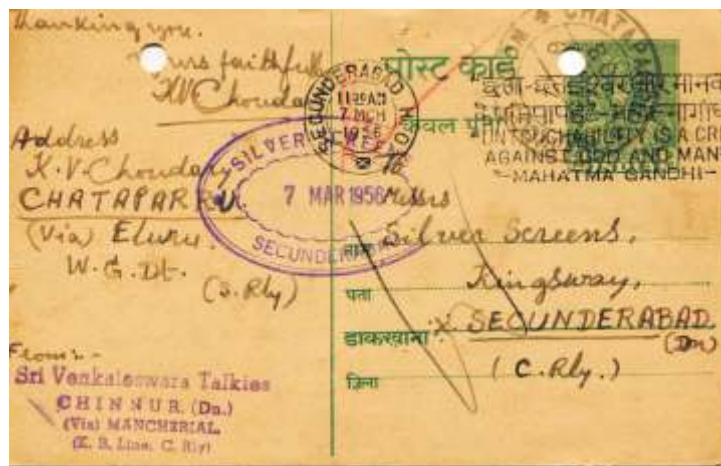 Thanking you.
Yours faithfully
KVChoudary
Address
K.V.Choudary
CHATAPARRU.
(Via) Eluru.
W.G.Dt.
(S.Rly)
From:-
Sri Venkateswara Talkies
CHINNUR. (Dn.)
(Via) MANCHERIAL.
(K. B. Line, C. Rly)
पोस्ट कार्ड
केवल
SECUNDERABAD
1130AM
7 MCH
1956
SILVER
7 MAR 1956
SECUNDERABAD
CHATAPARRU
UNTOUCHABILITY IS A CRIME
AGAINST GOD AND MAN
-MAHATMA GANDHI-
To
Messrs
Silver Screens,
पता
Kingsway,
डाकखाना
X SECUNDERABAD
(Dn)
ज़िला
(C.Rly.)